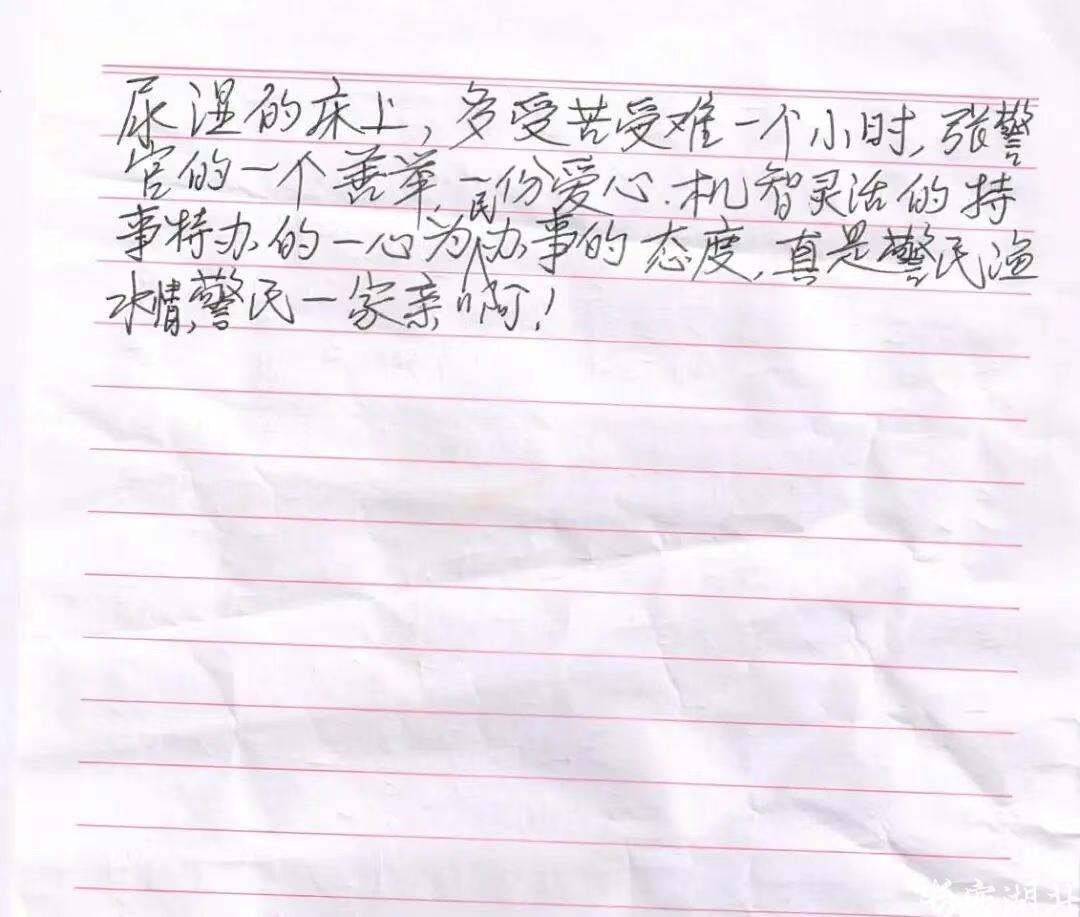 尿湿的床上，多受苦受难一个小时，张警
官的一个善举，一份爱心，机智灵活的持
事特办的一心为民办事的态度，真是警民渔
水情，警民一家亲啊！
长安湖北